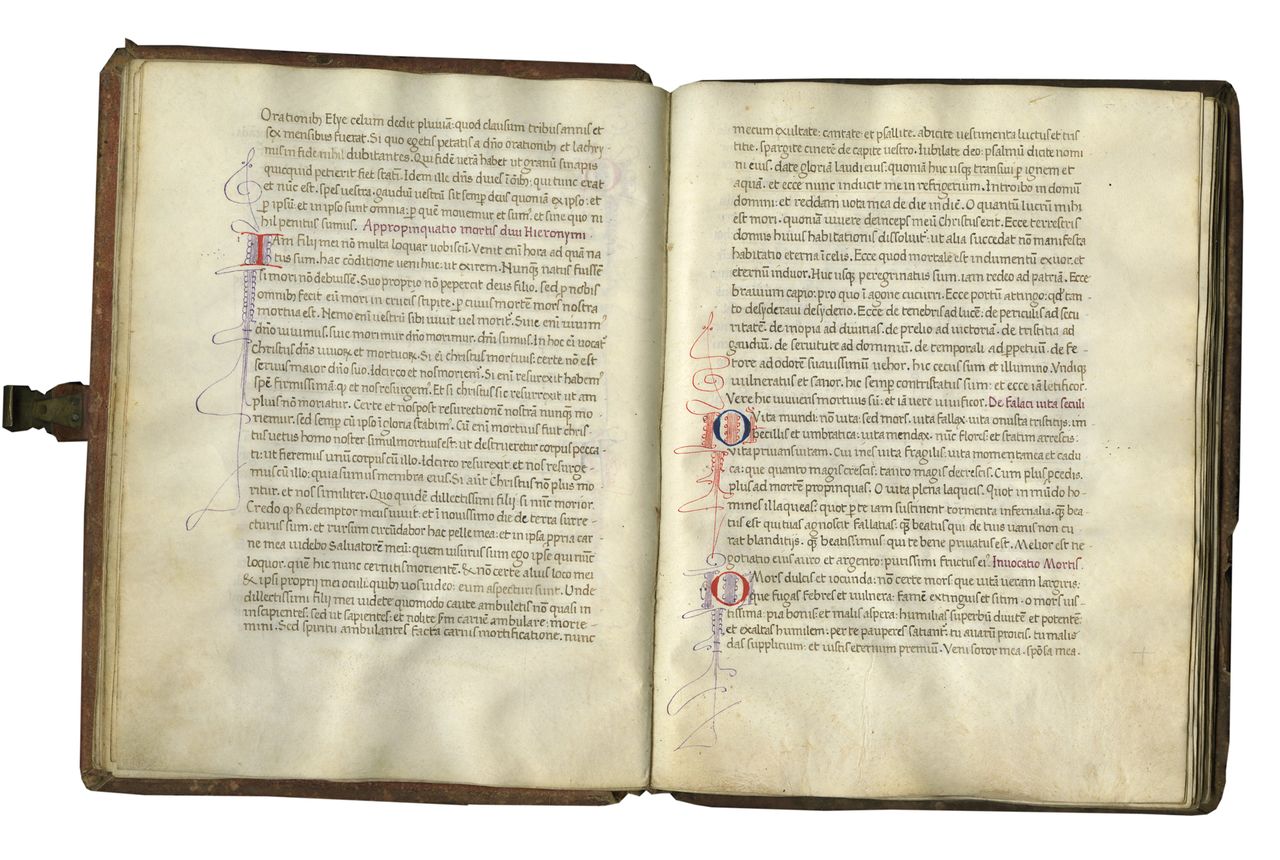 Orationib Elye celum dedit pluuiā: quod clausum tribus annis et
sex mensibus fuerat. Si quo egetis petatis a dn̄o orationib et lachry-
mis in fide nihil dubitantes. Qui fidem uerā habet ut granū sinapis
quicquid petierit fiet statī. Idem ille dn̄s diues ī oīb: qui tunc erat
et nūc est. spes uestra. gaudiū uestrū sit semp deus quoniā ex ipso: et
p ipsū: et in ipso sunt omnia: p quē mouemur et sum. et sine quo ni
hil penitus sumus. Appropinquatio mortis diui Hieronymi.
IAm filij mei nō multa loquar uobiscū. Venit eni hora ad quā na
tus sum. hac cōditione ueni huc: ut exirem. Nunq̄ natus fuissē
si mori nō debuissē. Suo proprio nō pepercit deus filio. sed p nobis
omnib fecit eū mori in crucis stipite. p cuius mortē mors nostra
mortua est. Nemo eni uestrū sibi uiuit uel morit. Siue eni uiuim
dn̄o uiuimus. siue morimur dn̄o morimur. dn̄i sumus. In hoc ei uocat
Christus dn̄s uiuoꝝ et mortuoꝝ. Si ei christus mortuus: certe nō est
seruus maior dn̄o suo. Idcirco et nos moriem. Si eni resurexit habem
spē firmissimā: q et nos resurgem. Et si christus sic resurrexit ut am
plius nō moriatur. Certe et nos post resurectionem nostrā nunq̄ mo
riemur. sed semp cū ipso ī gloria stabim. Cū eni mortius fuit chris-
tus uetus homo noster simul mortuus est. ut destrueretur corpus pecca-
ti: ut fieremus unū corpus cū illo. Idcirco resurexit. et nos resurge-
mus cū illo: quia sumus membra eius. Si aūt Christus nō plus mo
ritur. et nos similiter. Quo quidē dillectissimi filij si nūc morior.
Credo q Redemptor meus uiuit: et ī nouissimo die de terra surre-
cturus sum. et rursum circūdabor hac pelle mea: et in ipsa ppria car-
ne mea uidebo Saluatorē meū: quem uisurus sum ego ipse qui nūc
loquor. quem hic nunc cernitis morientē. & nō certe alius loco mei
& ipsi proprij mei oculi: quib uos uideo: eum aspecturi sunt. Unde
dillectissimi filij mei uidete quomodo caute ambuletis nō quasi in
insipientes. sed ut sapientes: et nolite sm carnē ambulare: morie-
mini. Sed spiritu ambulantes facta carnis mortificatione. nunc
mecum exultate: cantate: et psallite. abicite uestimenta luctus et tris
titie. spargite cinerē de capite uestro. Iubilate deo: psalmū dicite nomi
ni eius. date gloriā laudi eius. quoniā huc usq transiui p ignem et
aquā. et ecce nunc inducit me in refrigerium. Introibo in domū
domini: et reddam uota mea de die in diē. O quantū lucrū mihi
est mori. quoniā uiuere deinceps meū Christus erit. Ecce terrestris
domus huius habitationis dissoluit: ut alia succedat nō manifesta
habitatio eterna ī celis. Ecce quod mortale est indumentū exuor. et
eternū induor. Huc usq peregrinatus sum. iam redeo ad patriā. Ecce
brauium capio: pro quo ī agone cucurri. Ecce portū attingo: qd tan
to desyderaui desyderio. Ecce de tenebris ad lucē: de periculis ad secu
ritatē: de inopia ad diuitias. de prelio ad uictoria. de tristitia ad
gaudiū. de seruitute ad dominiū. de temporali ad ppetuū. de fe-
tore ad odorē suauissimū uehor. hic cecus sum et illumino. Vndiq
uulneratus et sanor. hic semp contristatus sum: et ecce iā letificor.
Vere hic uiuens mortuus sū: et iā uere uiuificor. De Falaci uita seculi
O Vita mundi: nō uita: sed mors. uita fallax. uita onusta tristitijs: im
becillis et umbratica: uita mendax. nūc flores: et statim arrescis.
Vita priuans uitam. Cui ines uita fragilis. uita momentanea et cadu
ca: que quanto magis crescis: tanto magis decrescis. Cum plus pcedis.
plus ad mortē propinquas. O uita plena laqueis. Quot in mūdo ho-
mines illaqueas: quot p te iam sustinent tormenta infernalia. q̄ bea
tus est qui tuas agnoscit fallatias: q̄ beatus qui de tuis uanis non cu
rat blanditijs. q̄ beatissimus qui te bene priuatus est. Melior est ne-
gotiatio eius auro et argento: purissimi fructus ei. Inuocatio Mortis.
O Mors dulcis et iocunda: nō certe mors que uitā ueram largiris:
que fugas febres et uulnera: famē extinguis et sitim. o mors ius-
tissima: pia bonis: et malis aspera: humilias superbū diuitē et potentē:
et exaltas humilem: per te pauperes satiant. tu auarū proicis. tu malis
das supplicium: et iustis eternum premiū. Veni soror mea. spōsa mea.